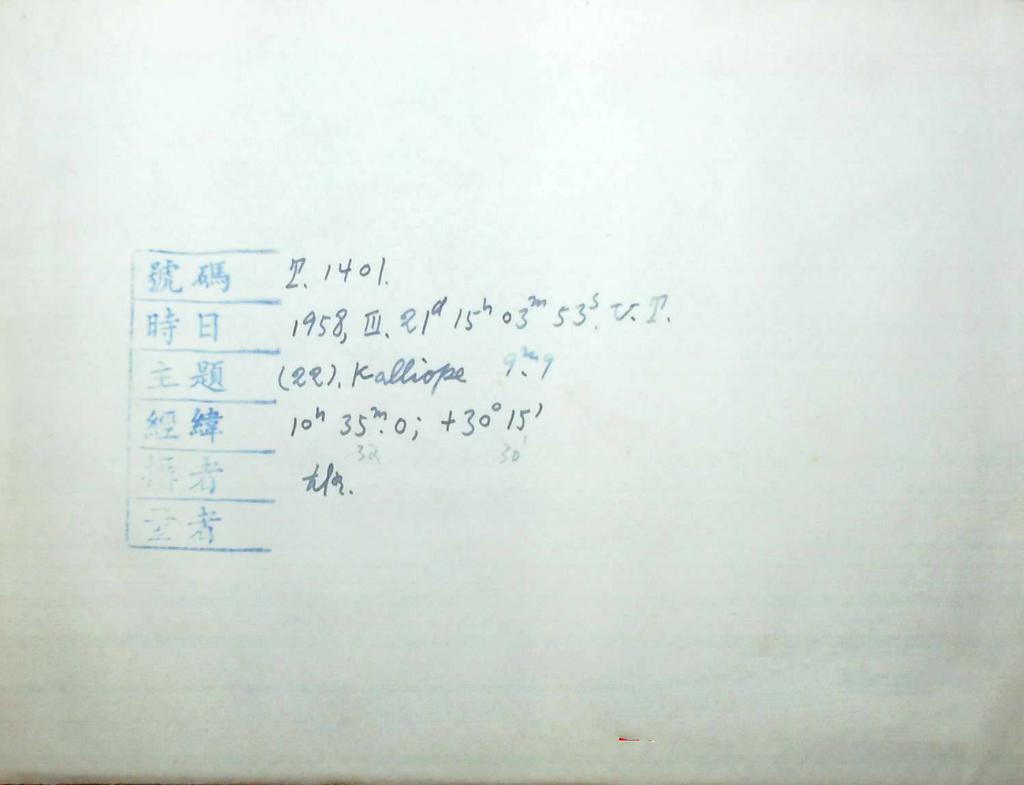 號碼 T. 1401.
時日 1958, III. 21ᵈ 15ʰ 03ᵐ 53ˢ. U.T.
主題 (22). Kalliope 9ᵐ.9
經緯 10ʰ 35ᵐ.0; +30° 15'
32 30'
者
者